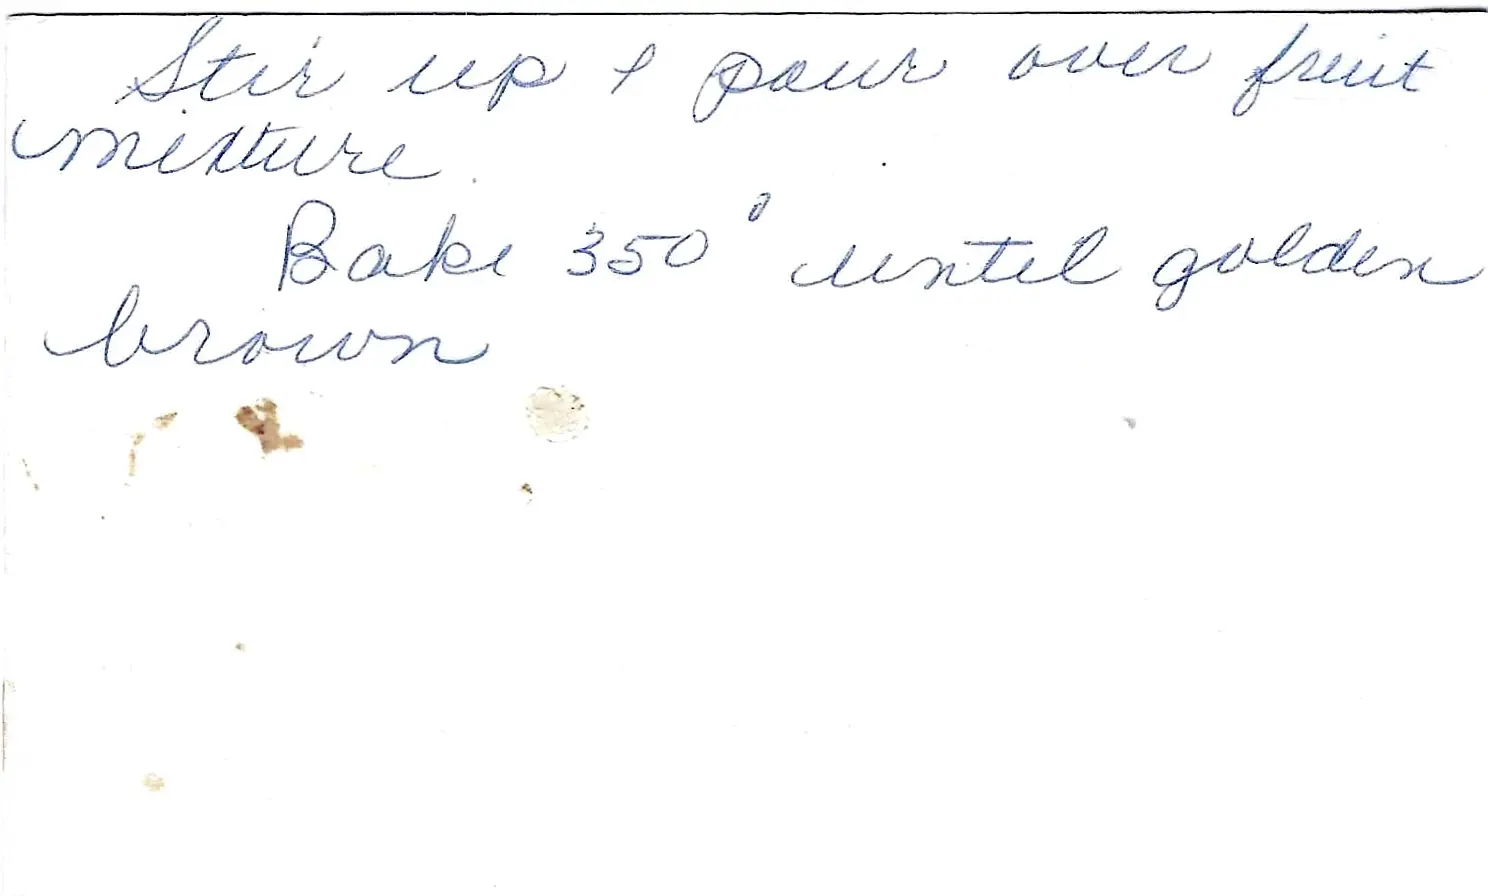 Stir up & pour over fruit
mixture.
Bake 350° until golden
brown